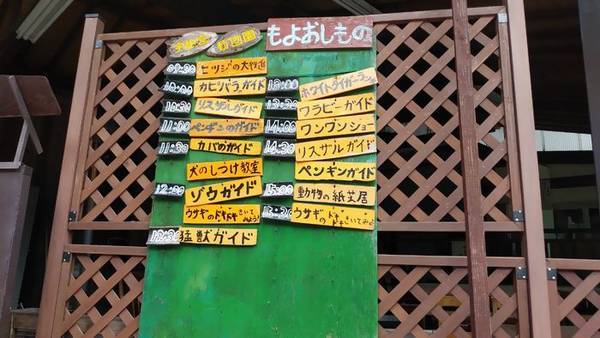 動物園
もよおしもの
ヒツジの大行進
カピバラガイド
10:30 リスザルガイド
11:00 ペンギンのガイド
11:30 カバのガイド
犬のしつけ教室
12:00 ゾウガイド
ウサギのドキドキきいてみよう!
12:30 猛獣ガイド
ホワイトタイガーランチ
13:30 ワラビーガイド
14:00 ワンワンショー
14:30 リスザルガイド
ペンギンガイド
15:00 動物の紙芝居
ウサギのドキドキきいてみよう